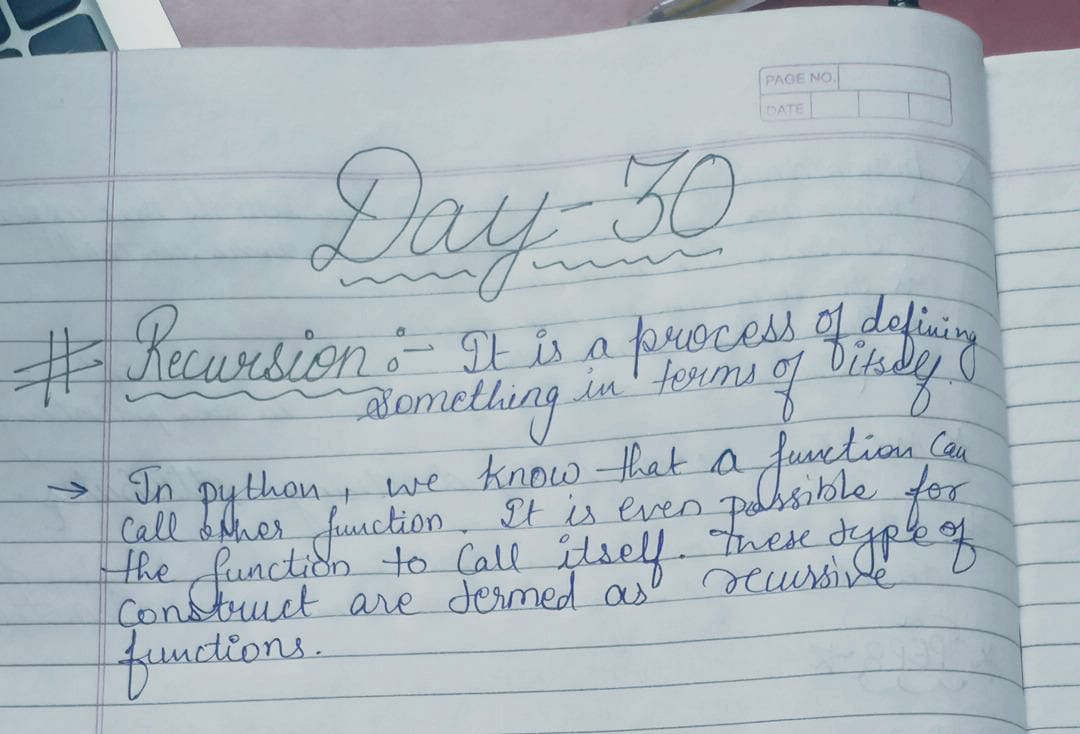 PAGE NO.
DATE
Day-30
# Recursion :- It is a process of defining
something in terms of itself.
→ In python, we know that a function can
call other function. It is even possible for
the function to call itself. These type of
construct are termed as recussive
functions.